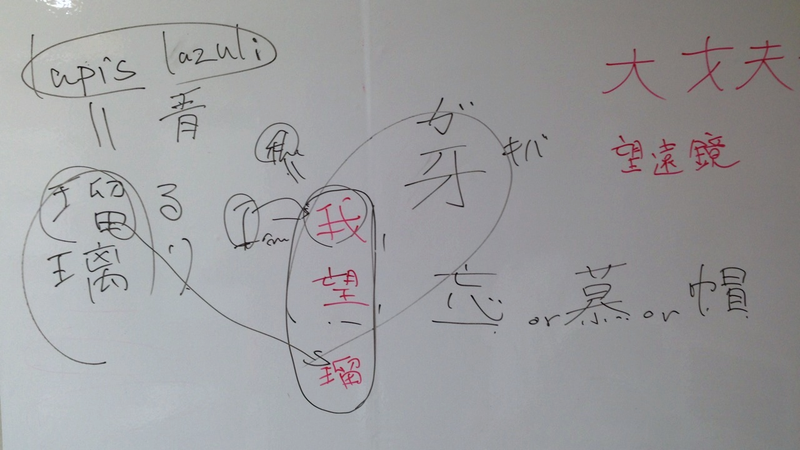 lapis lazuli
||
瑠 る
璃 り
I am
我
望
瑠
が
牙 キバ
大丈夫
望遠鏡
忘 or 慕 or 帽